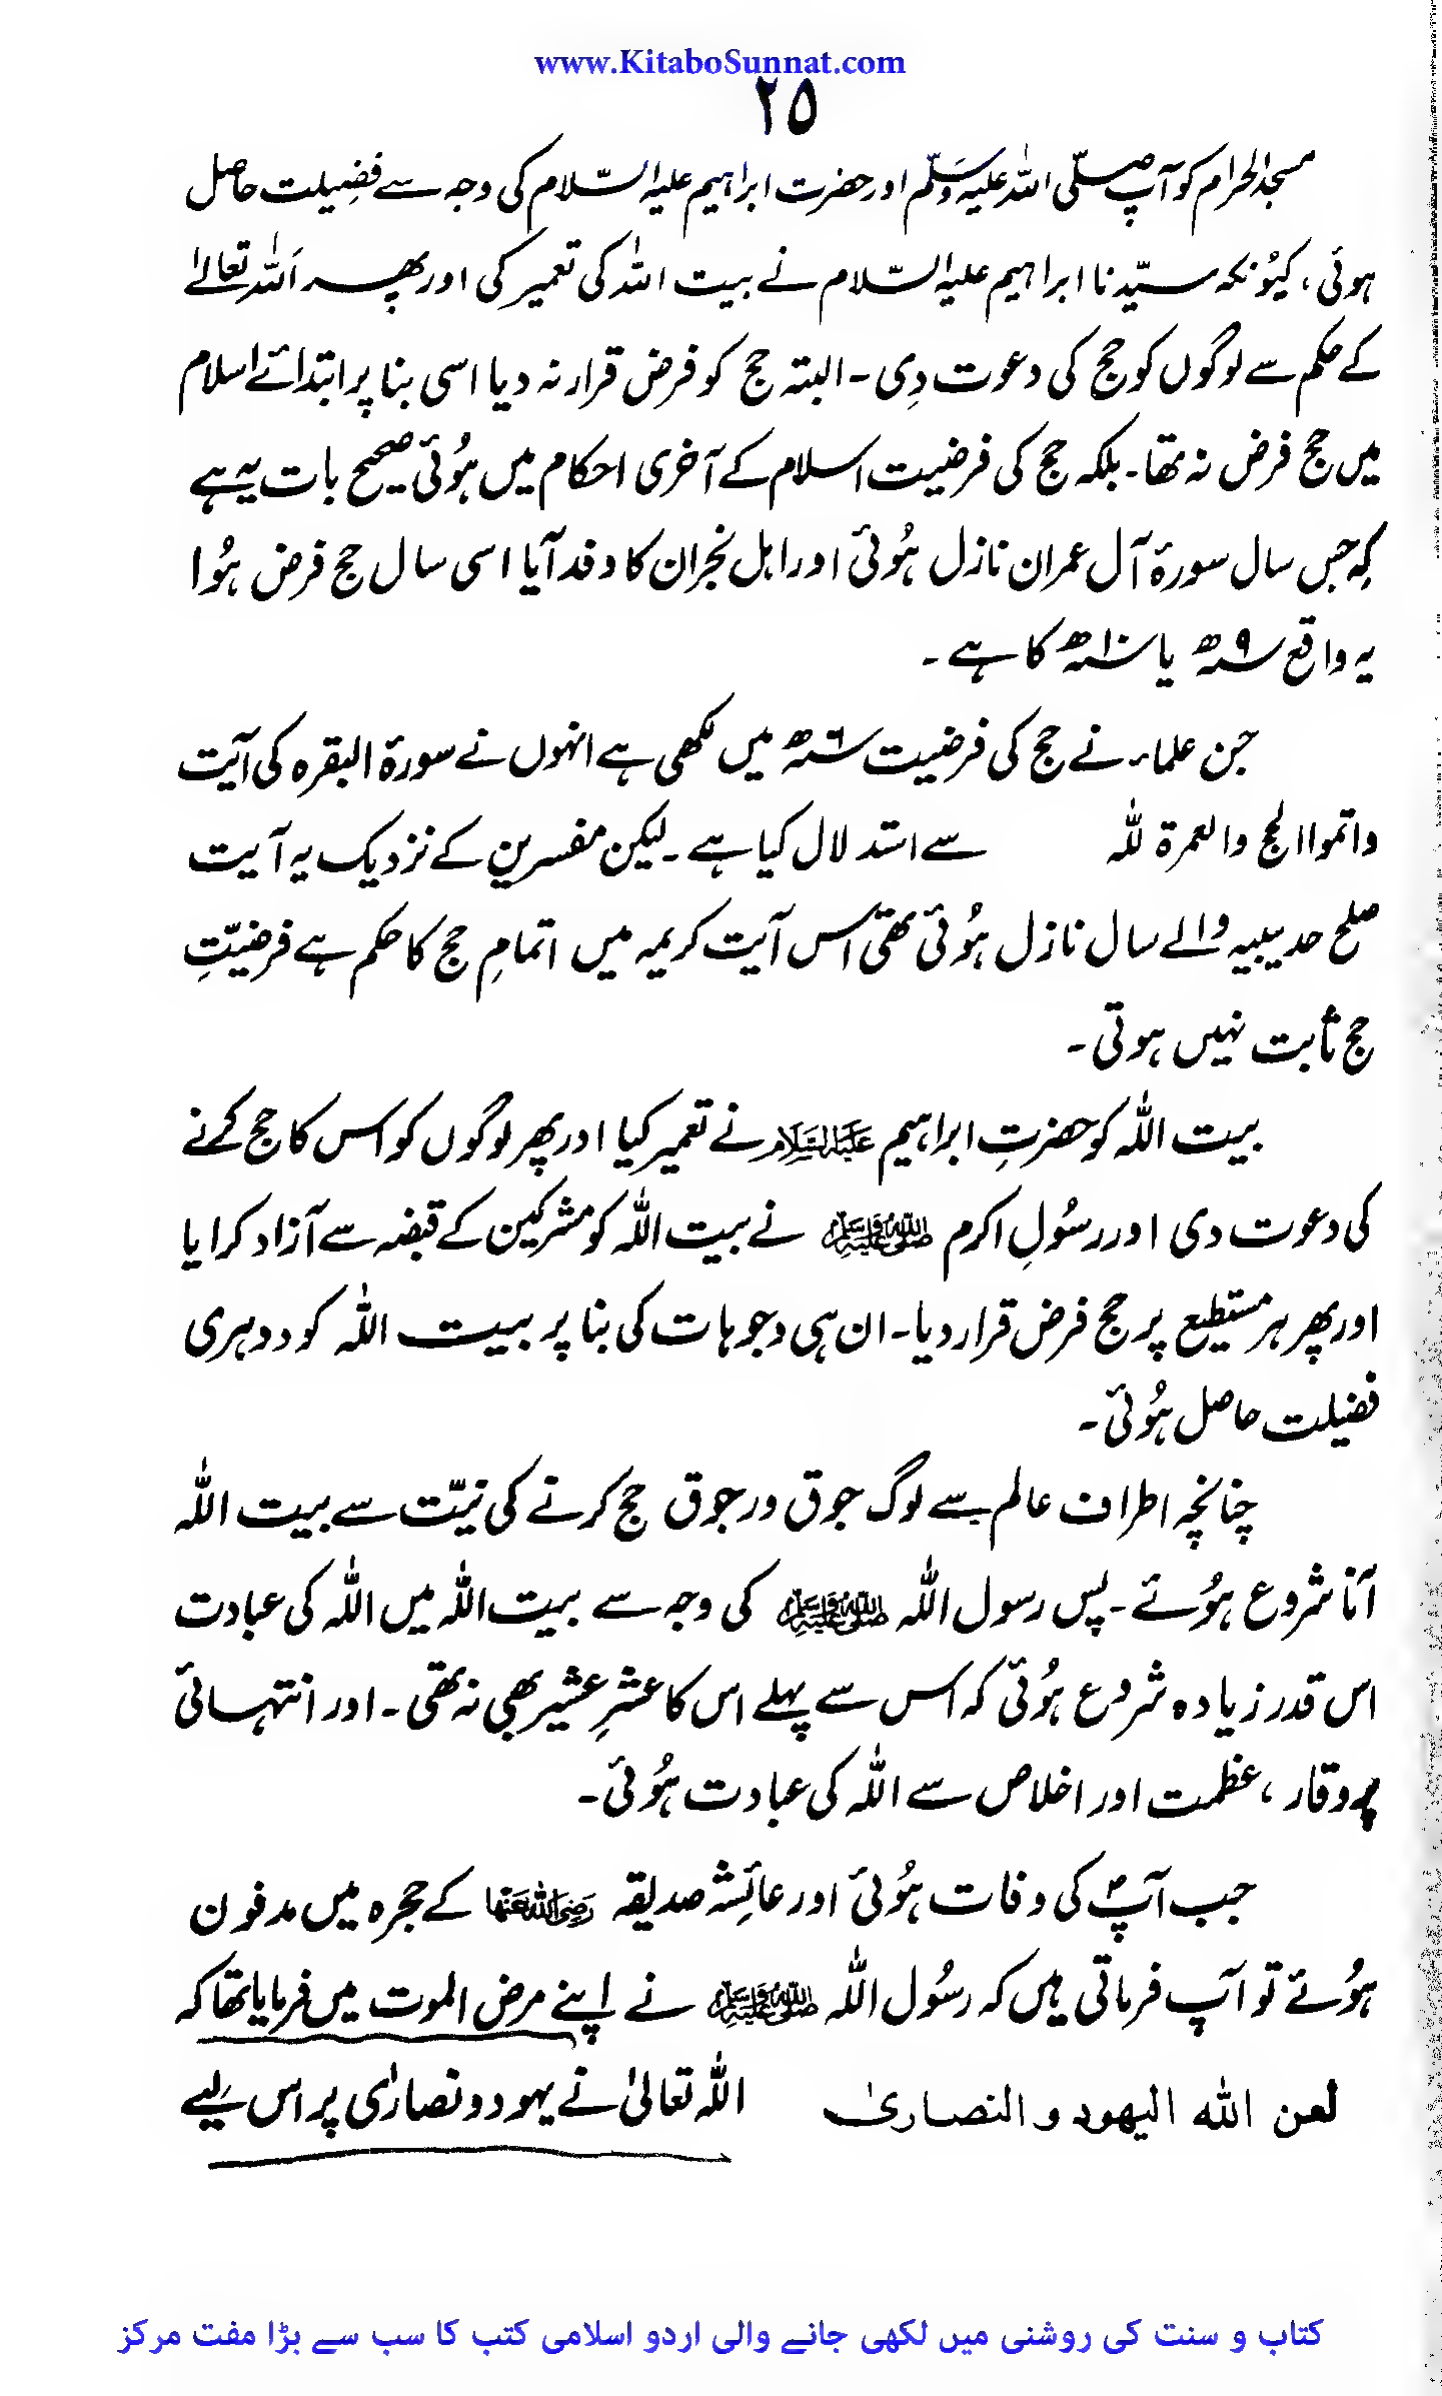 www.KitaboSunnat.com
۲۵
مسجد الحرام کو آپ صلّی اللہ علیہ وسلّم اور حضرت ابراہیم علیہ السّلام کی وجہ سے فضِیلت حاصل
ہوئی، کیُونکہ سیّدنا ابراہیم علیہ السّلام نے بیت اللہ کی تعمیر کی اور پھر اَللہ تعالےٰ
کے حکم سے لوگوں کو حج کی دعوت دِی ۔ البتہ حج کو فرض قرار نہ دیا اسی بنا پر ابتدائے اسلام
میں حج فرض نہ تھا۔ بلکہ حج کی فرضیت اسلام کے آخری احکام میں ہُوئی صحیح بات یہ ہے
کہ جس سال سورۃ آل عمران نازل ہُوئی اور اہل نجران کا وفد آیا اسی سال حج فرض ہُوا
یہ واقع ۹ھ یا ۱۰ھ کا ہے ۔
جن علماء نے حج کی فرضیت ۶ھ میں لکھی ہے انہوں نے سورۃ البقرہ کی آیت
واتموا الحج والعمرۃ للہ سے استدلال کیا ہے ۔ لیکن مفسرین کے نزدیک یہ آیت
صلح حدیبیہ والے سال نازل ہُوئی تھی اس آیت کریمہ میں اتمامِ حج کا حکم ہے فرضیّتِ
حج ثابت نہیں ہوتی ۔
بیت اللہ کو حضرتِ ابراہیم عَلَیہِ السَّلَام نے تعمیر کیا اور پھر لوگوں کو اس کا حج کرنے
کی دعوت دی اور رسُولِ اکرم ﷺ نے بیت اللہ کو مشرکین کے قبضہ سے آزاد کرایا
اور پھر ہر مستطیع پر حج فرض قرار دیا۔ ان ہی وجوہات کی بنا پر بیت اللہ کو دوہری
فضیلت حاصل ہُوئی ۔
چنانچہ اطراف عالم سے لوگ جوق در جوق حج کرنے کی نیّت سے بیت اللہ
آنا شروع ہُوئے ۔ پس رسول اللہ ﷺ کی وجہ سے بیت اللہ میں اللہ کی عبادت
اس قدر زیادہ شروع ہُوئی کہ اس سے پہلے اس کا عشرِ عشیر بھی نہ تھی ۔ اور انتہائی
پروقار، عظمت اور اخلاص سے اللہ کی عبادت ہُوئی ۔
جب آپؐ کی وفات ہُوئی اور عائشہ صدیقہ رَضِیَ اللہُ عَنْہَا کے حجرہ میں مدفون
ہُوئے تو آپ فرماتی ہیں کہ رسُول اللہ ﷺ نے اپنے مرض الموت میں فرمایا تھا کہ
لعن الله اليهود و النصارىٰ اللہ تعالیٰ نے یہود و نصارٰی پر اس لیے
کتاب و سنت کی روشنی میں لکھی جانے والی اردو اسلامی کتب کا سب سے بڑا مفت مرکز